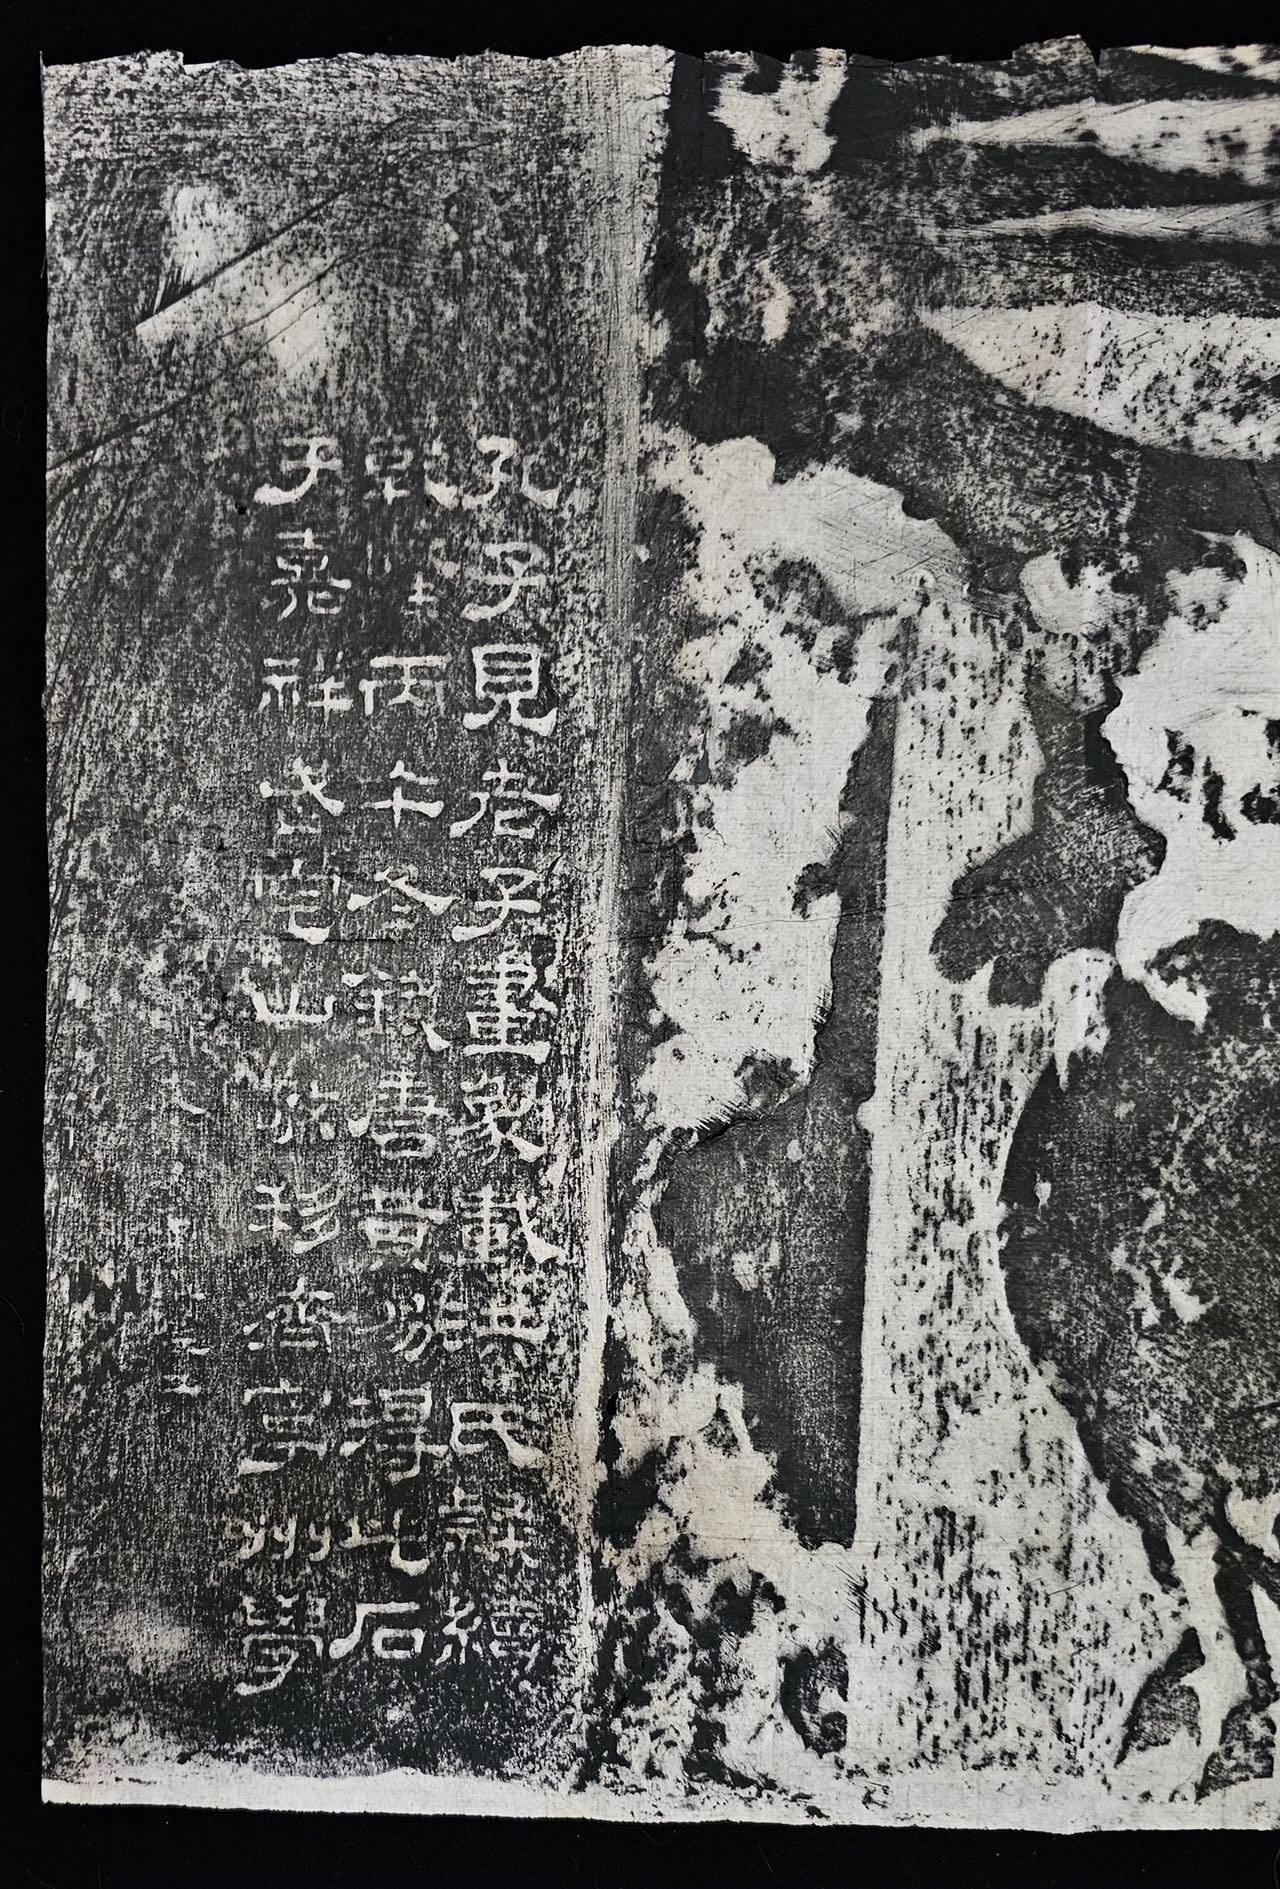 孔子見老子畫象載洪氏隸續
乾隆丙午冬錢唐黃易得此石
于嘉祥武宅山敬移濟寧州學